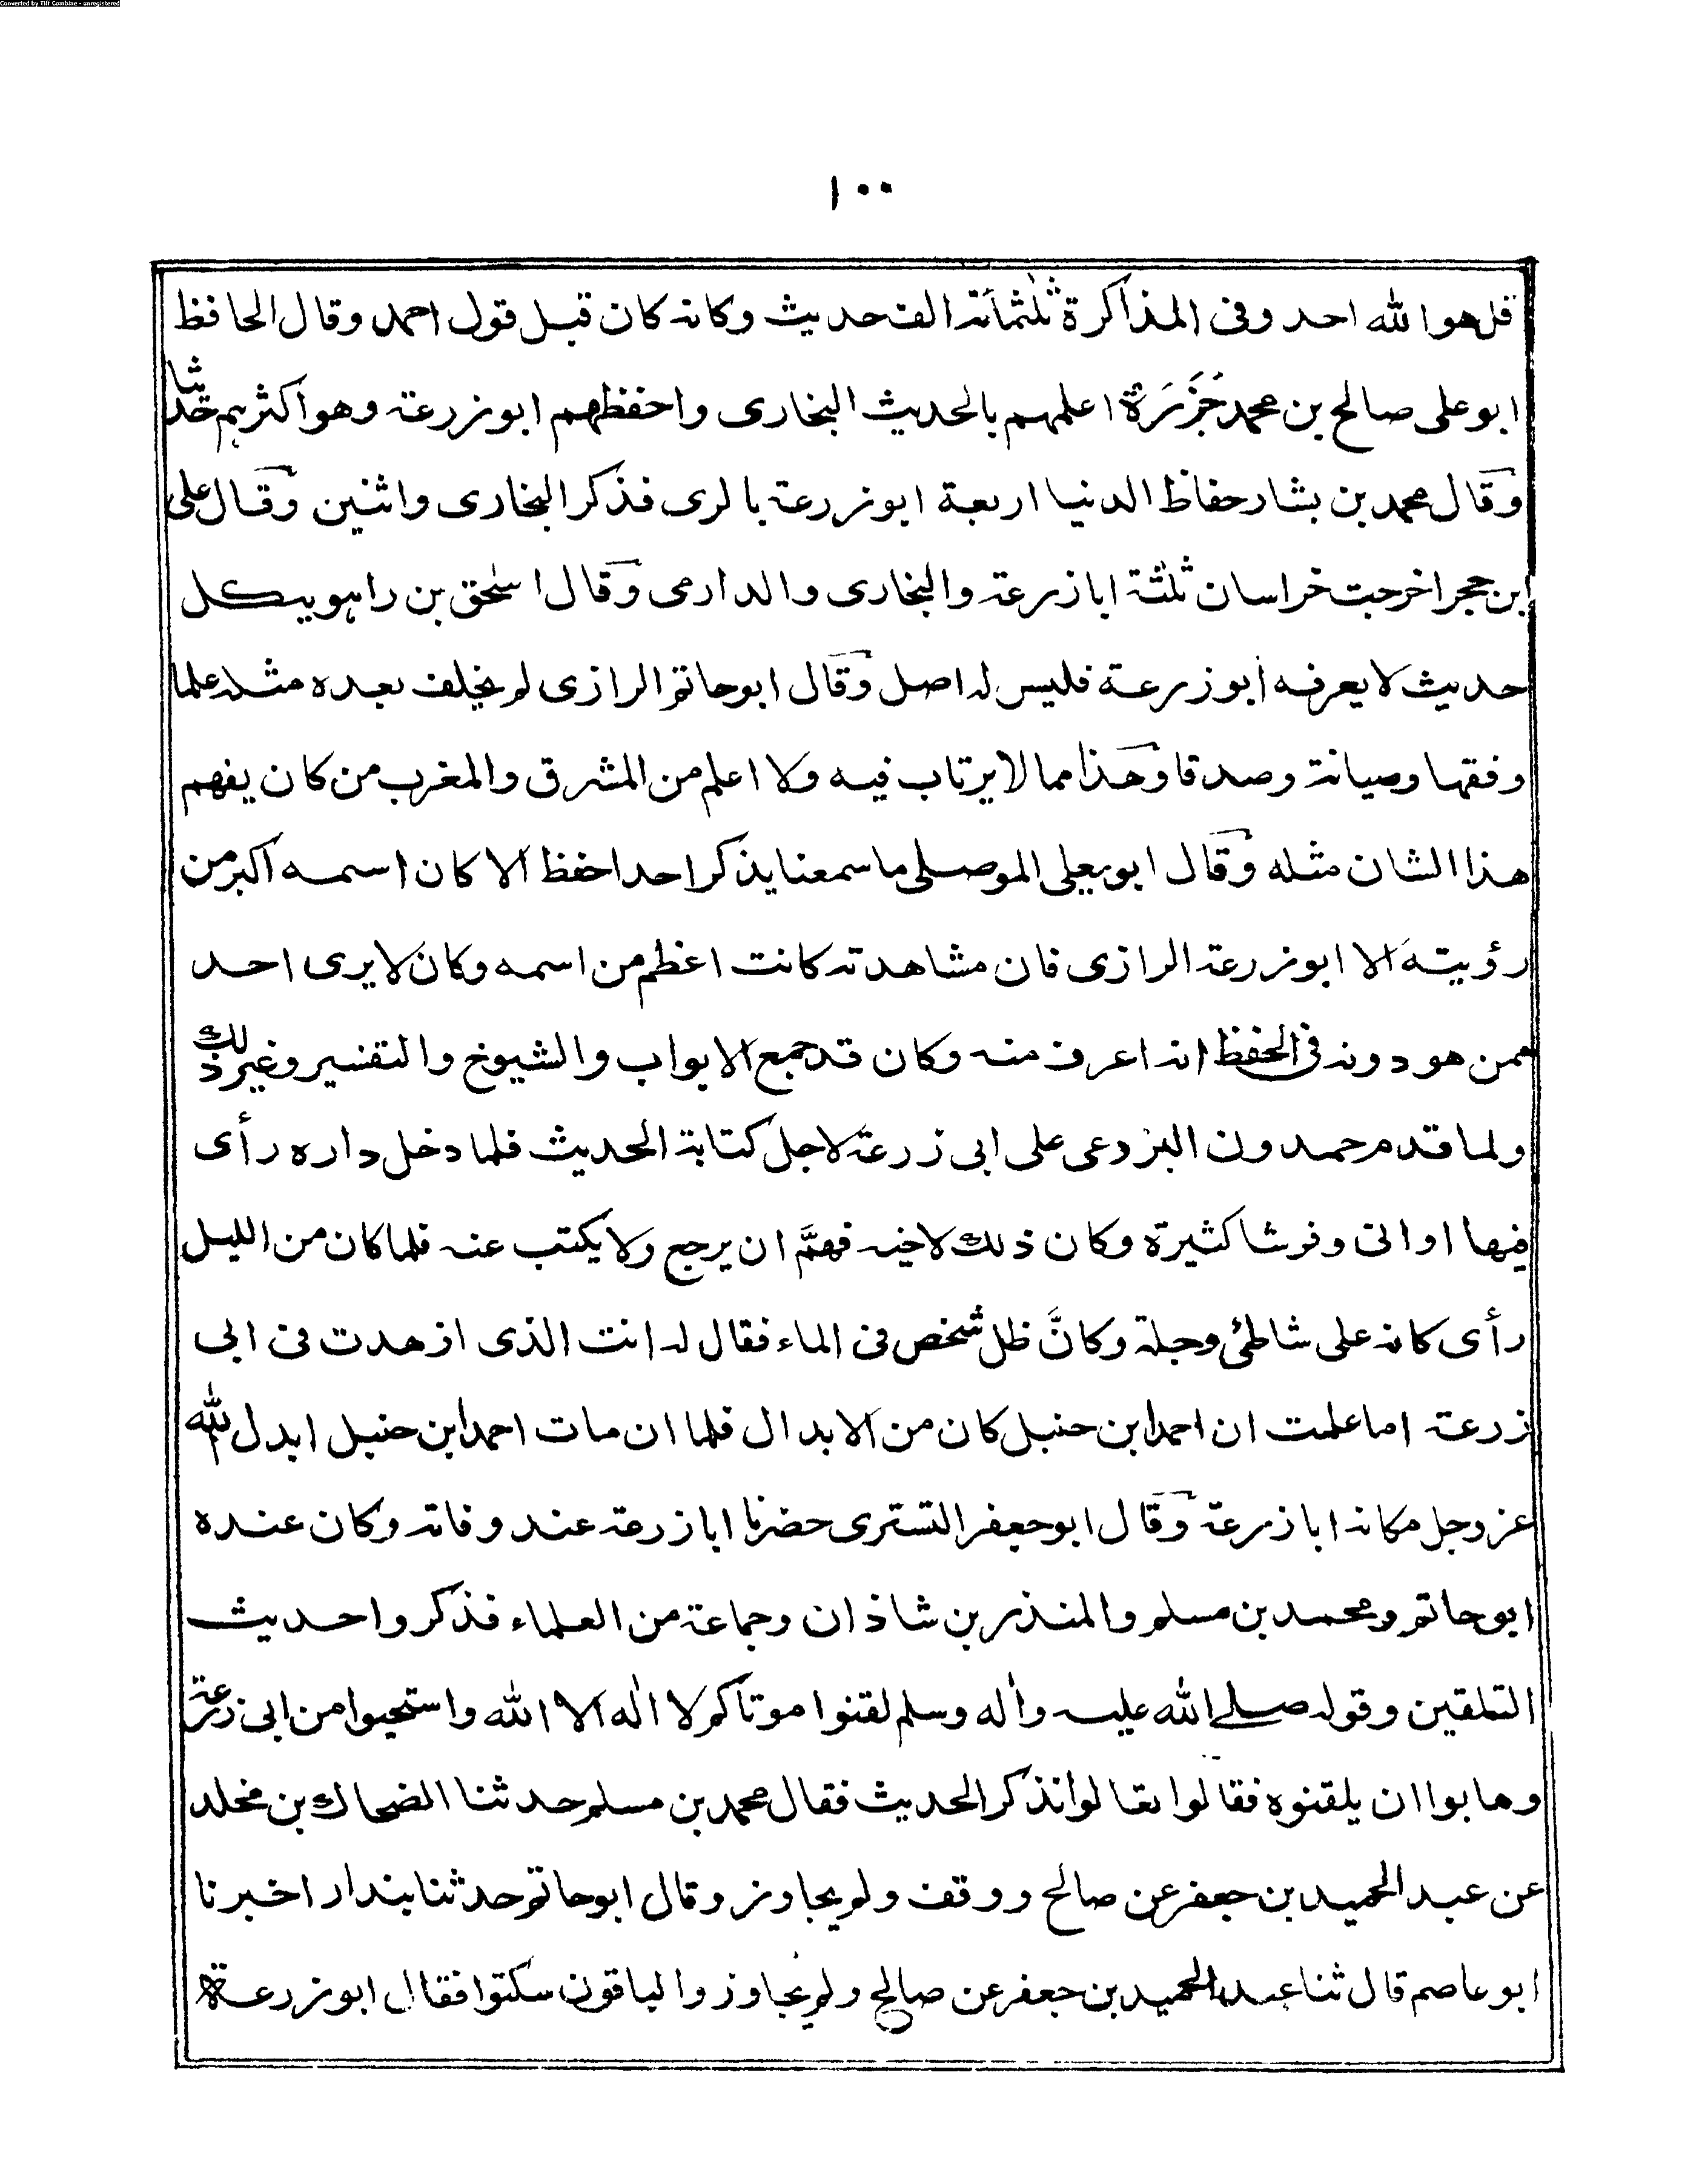 Converted by Tiff Combine - unregistered
١٠٠
قل هو الله احد وفى المذاكرة ثلٰثمأتہ الف حديث وكانہ كان قبل قول احمد وقال الحافظ
ابو على صالح بن محمد جَزَرَة اعلمهم بالحديث البخارى واحفظهم ابو زرعۃ وهو اكثرہم حدثيا
وقال محمد بن بشار حفاظ الدنيا اربعة ابو زرعۃ بالرى فذكر البخارى واثنين وقال على
ابن حجر اخرجت خراسان ثلٰثۃ ابا زرعۃ والبخارى والدارمى وقال اسٰحق بن راہويہ كل
حديث لا يعرفہ ابو زرعة فليس لہ اصل وقال ابو حاتم الرازى لم يخلف بعدہ مثلہ علما
وفقہا وصيانۃ وصدقا وهذا مما لا يرتاب فيہ ولا اعلم من المشرق والمغرب من كان يفهم
هذا الشان مثله وقال ابو يعلى الموصلى ما سمعنا يذكر احد احفظ الا كان اسمہ اكبر من
رؤيتہ الا ابو زرعۃ الرازى فان مشاهدتہ كانت اعظم من اسمہ وكان لا يرى احد
ممن هو دونہ فى الحفظ انہ اعرف منہ وكان قد جمع الابواب والشيوخ والتفسير وغير ذلك
ولما قدم حمدون البزدعى على ابى زرعۃ لاجل كتابۃ الحديث فلما دخل دارہ رأى
فيها اوانى وفرشا كثيرة وكان ذلك لاخيہ فهمَّ ان يرجع ولا يكتب عنہ فلما كان من الليل
رأى كانہ على شاطئ وجلۃ وكانَّ ظل شخص فى الماء فقال لہ انت الذى ازهدت فى ابى
زرعۃ اما علمت ان احمد ابن حنبل كان من الابدال فلما ان مات احمد ابن حنبل ابدل الله
عز وجل مكانہ ابا زرعۃ وقال ابو جعفر التسترى حضرنا ابا زرعۃ عند وفاتہ وكان عندہ
ابو حاتم ومحمد بن مسلم والمنذر بن شاذان وجماعۃ من العلماء فذكروا حديث
التلقين وقولہ صلے الله عليہ واٰله وسلم لقنوا موتاكم لا الٰه الا الله واستحيوا من ابى زرعۃ
وهابوا ان يلقنوہ فقالوا تعالوا نذكر الحديث فقال محمد بن مسلم حدثنا الضحاك بن مخلد
عن عبد الحميد بن جعفر عن صالح ووقف ولم يجاوز وقال ابو حاتم حدثنا بندار اخبرنا
ابو عاصم قال ثنا عبد الحميد بن جعفر عن صالح ولم يجاوز والباقون سكتوا فقال ابو زرعۃ